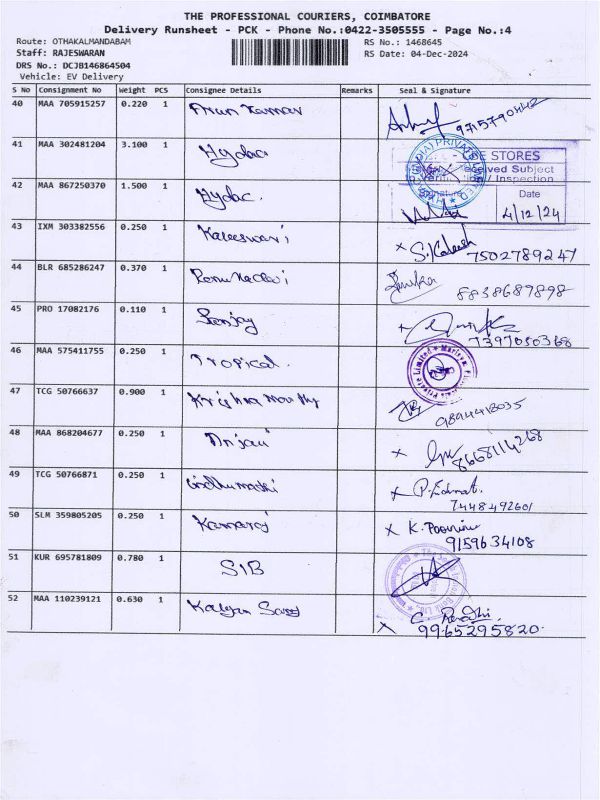 THE PROFESSIONAL COURIERS, COIMBATORE
Delivery Runsheet - PCK - Phone No.:0422-3505555 - Page No.:4
Route: OTHAKALMANDABAM RS No.: 1468645
Staff: RAJESWARAN RS Date: 04-Dec-2024
DRS No.: DCJB146864504
Vehicle: EV Delivery
S No Consignment No Weight PCS Consignee Details Remarks Seal & Signature
40 MAA 705915257 0.220 1 Arun Kumar 9715790442
41 MAA 302481204 3.100 1 Hydac
STORES
Received Subject
Verification / Inspection
42 MAA 867250370 1.500 1 Hydac.
Date
4/12/24
43 IXM 303382556 0.250 1 Kaleeswari x S. Kalesh
7502789247
44 BLR 685286247 0.370 1 Renukadevi Renuka
8838687898
45 PRO 17082176 0.110 1 Senjay x
7397050368
46 MAA 575411755 0.250 1 Tropical.
Private Limited
47 TCG 50766637 0.900 1 Krishnamoorthy
9894418035
48 MAA 868204677 0.250 1 Anjali x
8668114268
49 TCG 50766871 0.250 1 Sindhumathi x
7448492601
50 SLM 359805205 0.250 1 Kamaraj x K. Poornima
9159634108
51 KUR 695781809 0.780 1 SIB
52 MAA 110239121 0.630 1 Kalyan x C. Revathi
9965295820